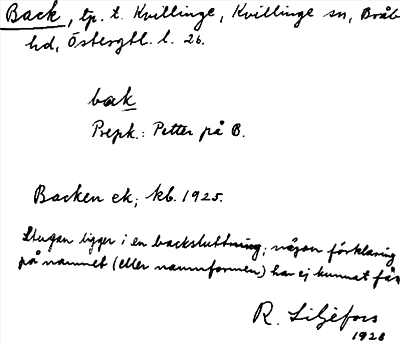 Back, tp. t. Kvillinge, Kvillinge sn, Bråb
hd, Östergtl. l. 26.
bak
Prepk.: Petter på B.
Backen ek; kb. 1925.
Stugan ligger i en backsluttning; någon förklaring
på namnet (eller namnformen) har ej kunnat fås
R. Liljefors
1928